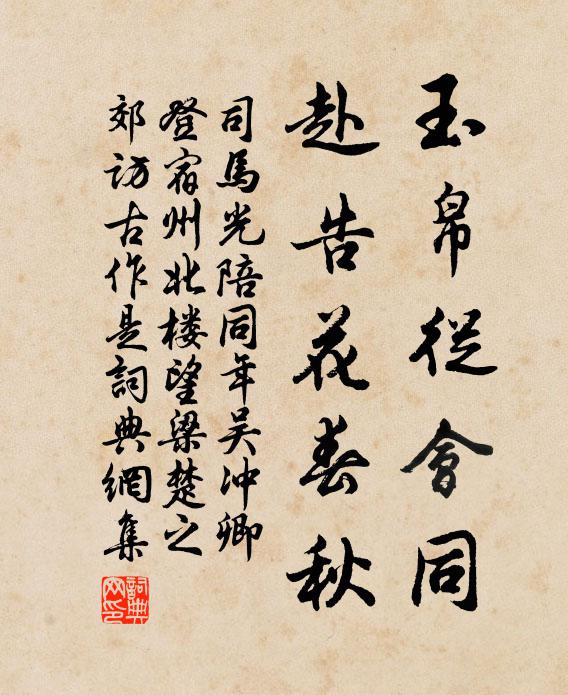 玉帛從會同
赴告花春秋
司馬光陪同年吴冲卿
登宿州北楼望梁楚之
郊访古作是詞典網集
詞典
网印